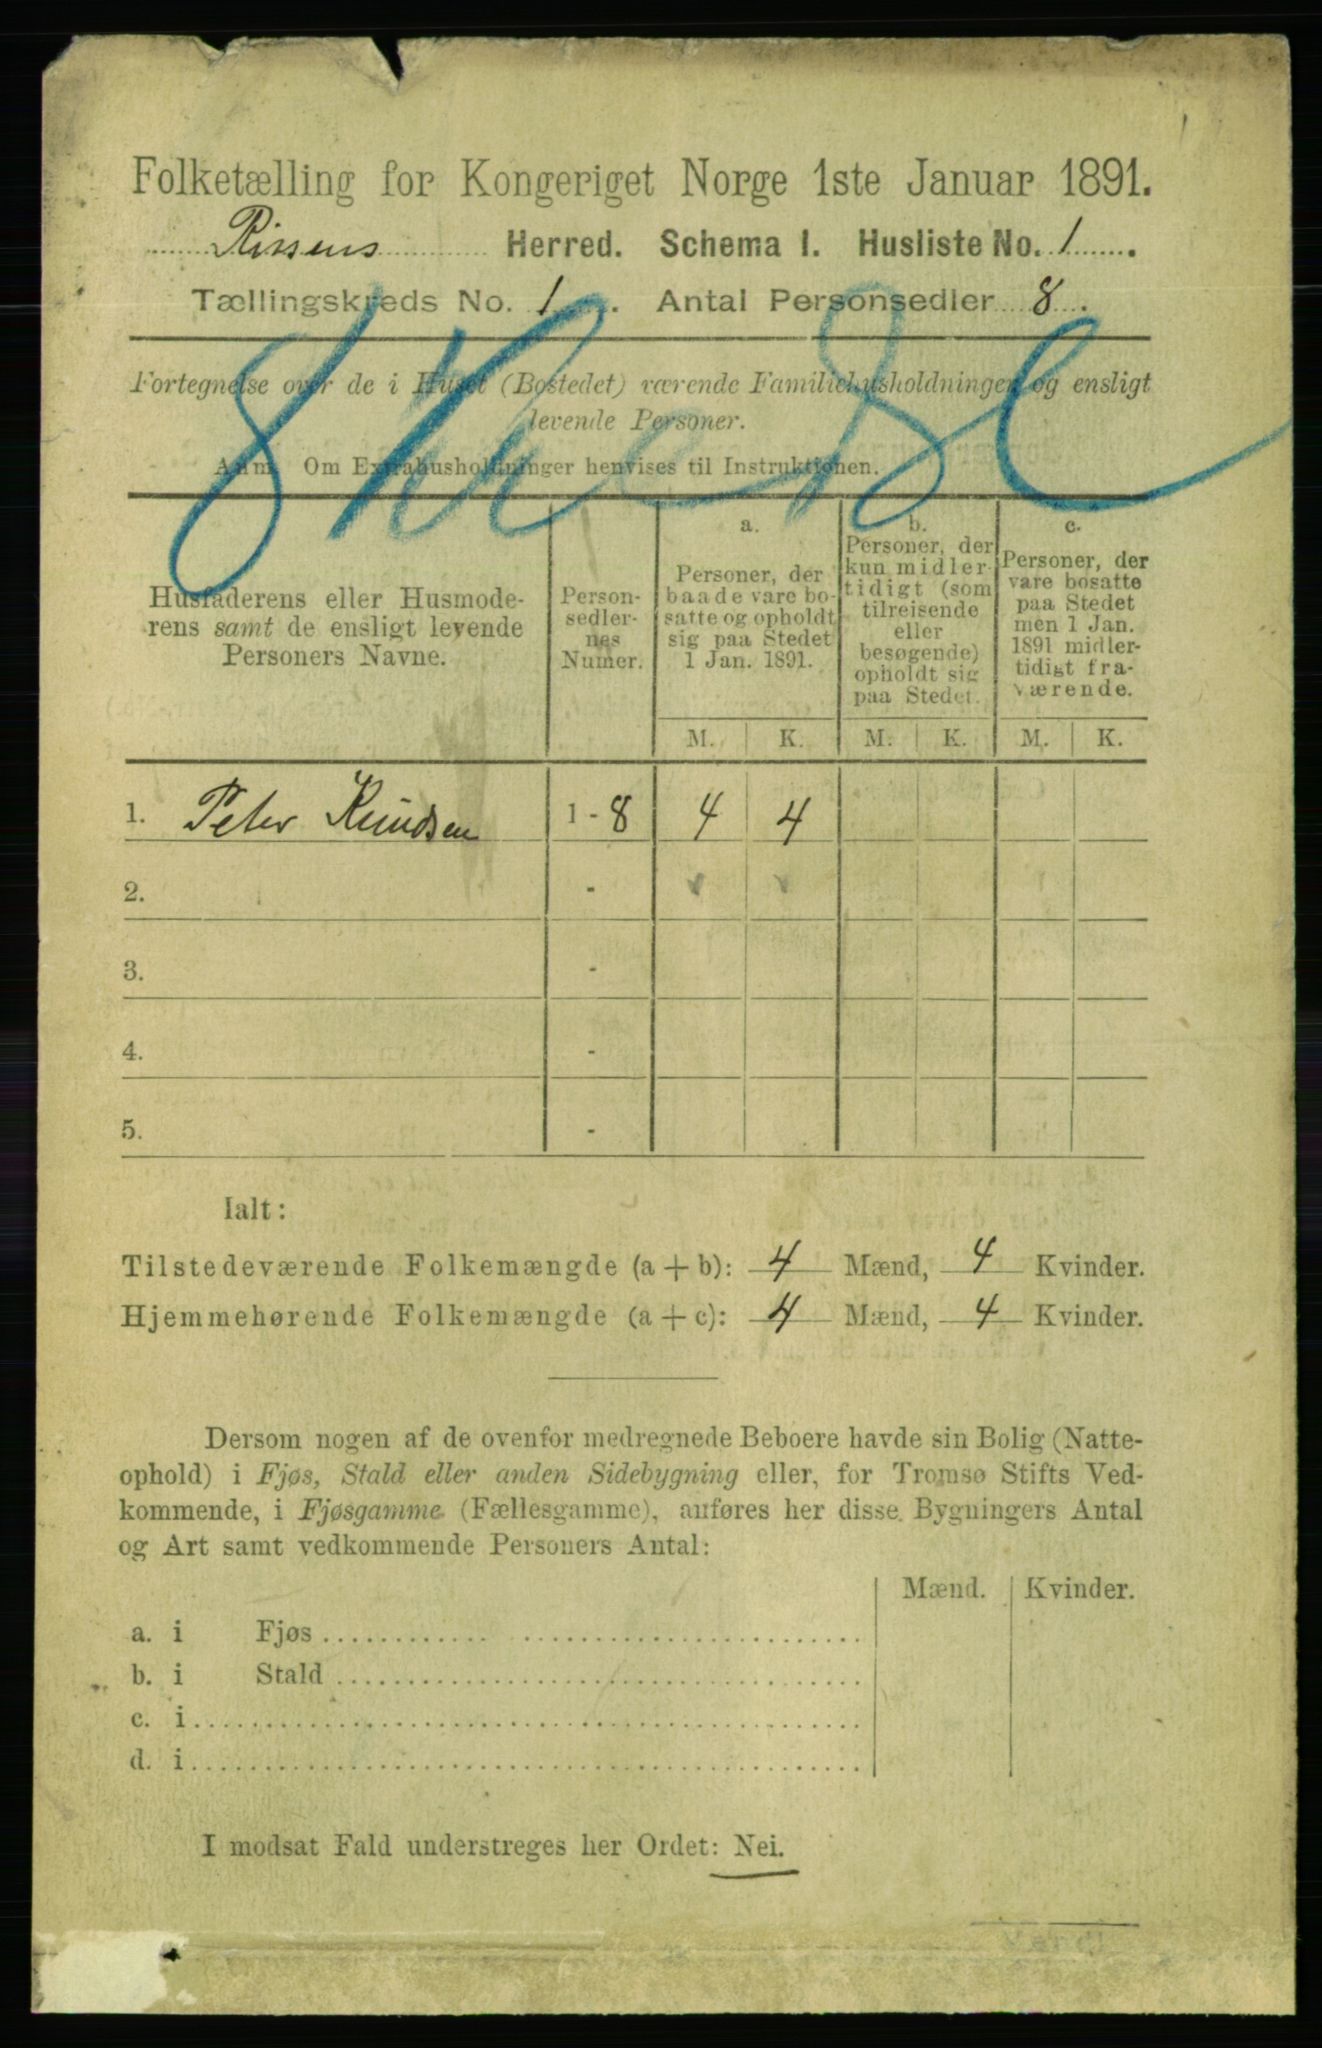 Folketælling for Kongeriget Norge 1ste Januar 1891.
Rissens Herred. Schema I. Husliste No. 1.
Tællingskreds No. 1. Antal Personsedler 8.
Fortegnelse over de i Huset (Bostedet) værende Familiehusholdninger og ensligt
levende Personer.
Anm. Om Extrahusholdninger henvises til Instruktionen.
Husfaderens eller Husmode-
rens samt de ensligt levende
Personers Navne.
Person-
sedler-
nes
Numer.
a.
Personer, der
baade vare bo-
satte og opholdt
sig paa Stedet
1 Jan. 1891.
b.
Personer, der
kun midler-
tidigt (som
tilreisende
eller
besøgende)
opholdt sig
paa Stedet.
c.
Personer, der
vare bosatte
paa Stedet
men 1 Jan.
1891 midler-
tidigt fra-
værende.
M. K. M. K. M. K.
1. Peter Knudsen 1 - 8 4 4
2. -
3. -
4. -
5. -
Ialt:
Tilstedeværende Folkemængde (a + b): 4 Mænd, 4 Kvinder.
Hjemmehørende Folkemængde (a + c): 4 Mænd, 4 Kvinder.
Dersom nogen af de ovenfor medregnede Beboere havde sin Bolig (Natte-
ophold) i Fjøs, Stald eller anden Sidebygning eller, for Tromsø Stifts Ved-
kommende, i Fjøsgamme (Fællesgamme), anføres her disse Bygningers Antal
og Art samt vedkommende Personers Antal:
Mænd. Kvinder.
a. i Fjøs
b. i Stald
c. i
d. i
I modsat Fald understreges her Ordet: Nei.